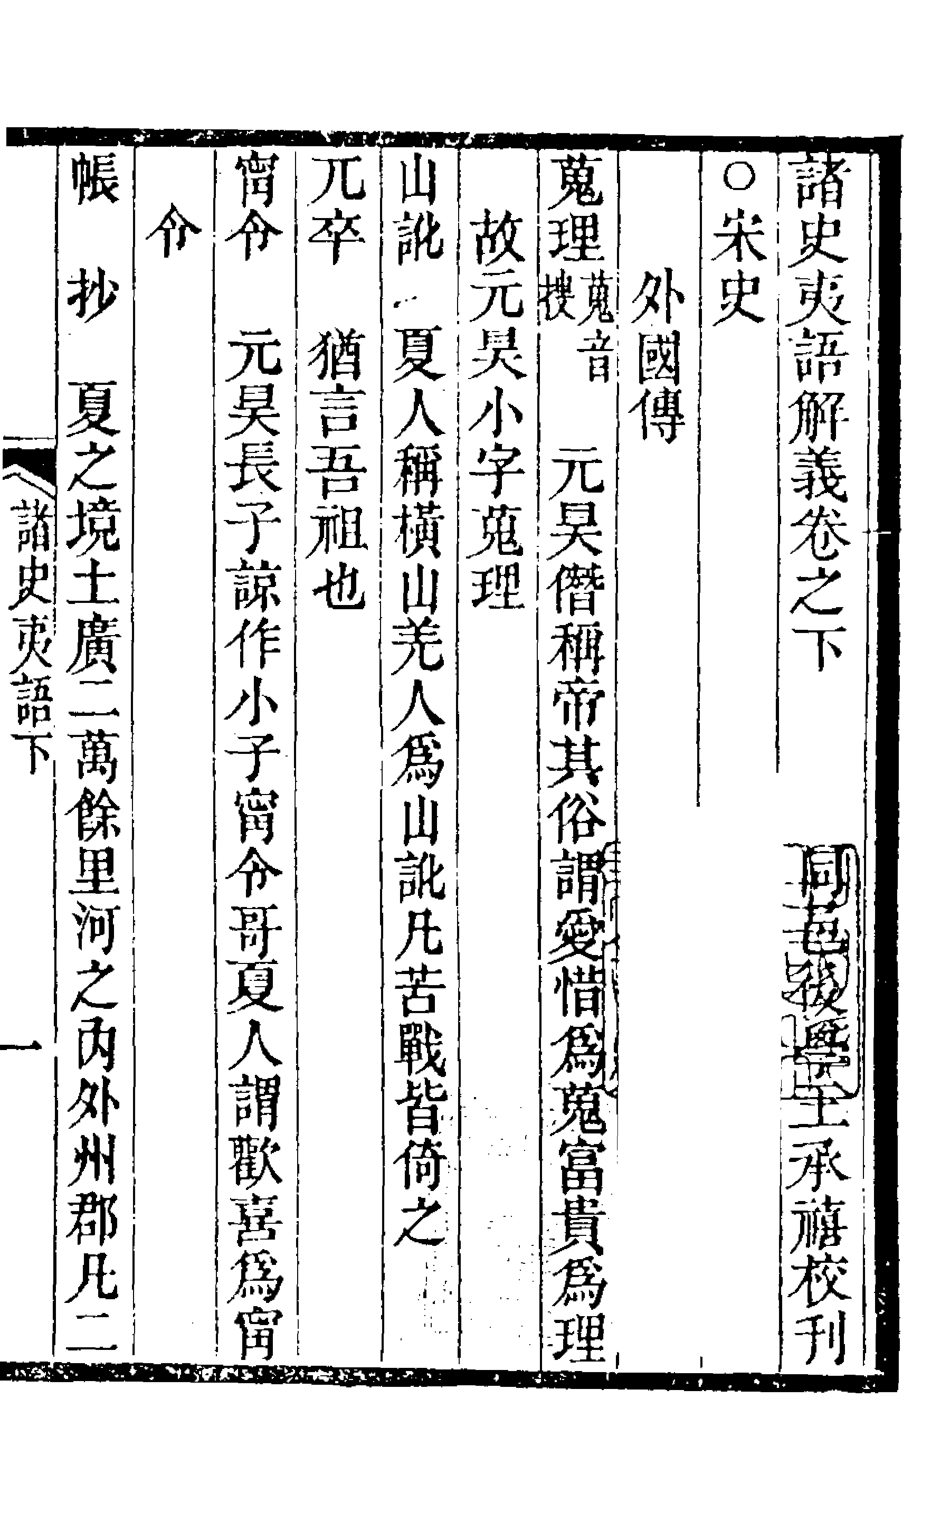 諸史夷語解義卷之下
同邑後學王承禧校刊
○宋史
外國傳
蒐理蒐音搜 元昊僭稱帝其俗謂愛惜爲蒐富貴爲理
故元昊小字蒐理
山訛 夏人稱橫山羌人爲山訛凡苦戰皆倚之
兀卒 猶言吾祖也
甯令 元昊長子諒作小子甯令哥夏人謂歡喜爲甯
令
帳抄 夏之境土廣二萬餘里河之內外州郡凡二
諸史夷語下
一